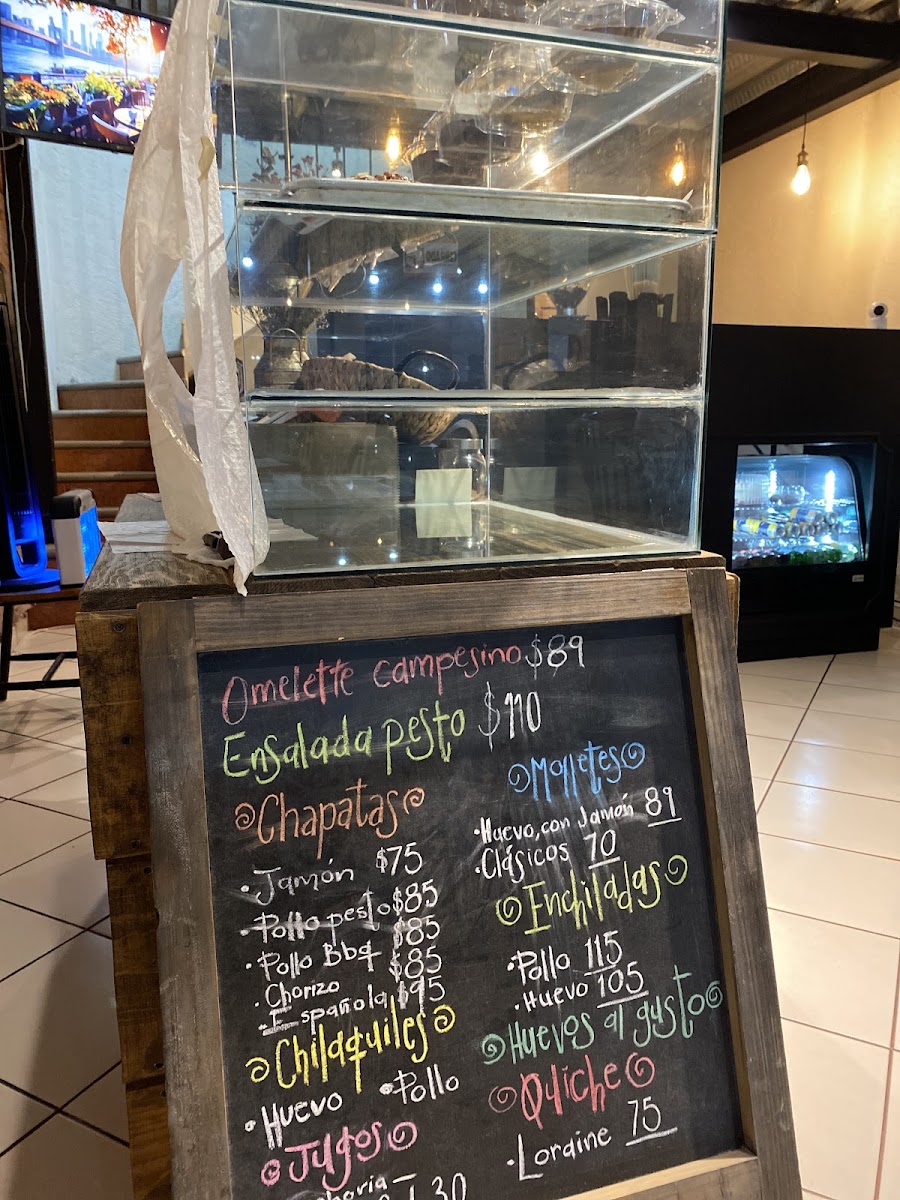 Omelette campesino $89
Ensalada pesto $110
Chapatas
• Jamón $75
• Pollo pesto $85
• Pollo Bbq $85
• Chorizo $85
• Española $95
Chilaquiles
• Huevo • Pollo
Jugos
Molletes
• Huevo, con Jamón 89
• Clásicos 70
Enchiladas
• Pollo 115
• Huevo 105
Huevos al gusto
Quiche
• Loraine 75